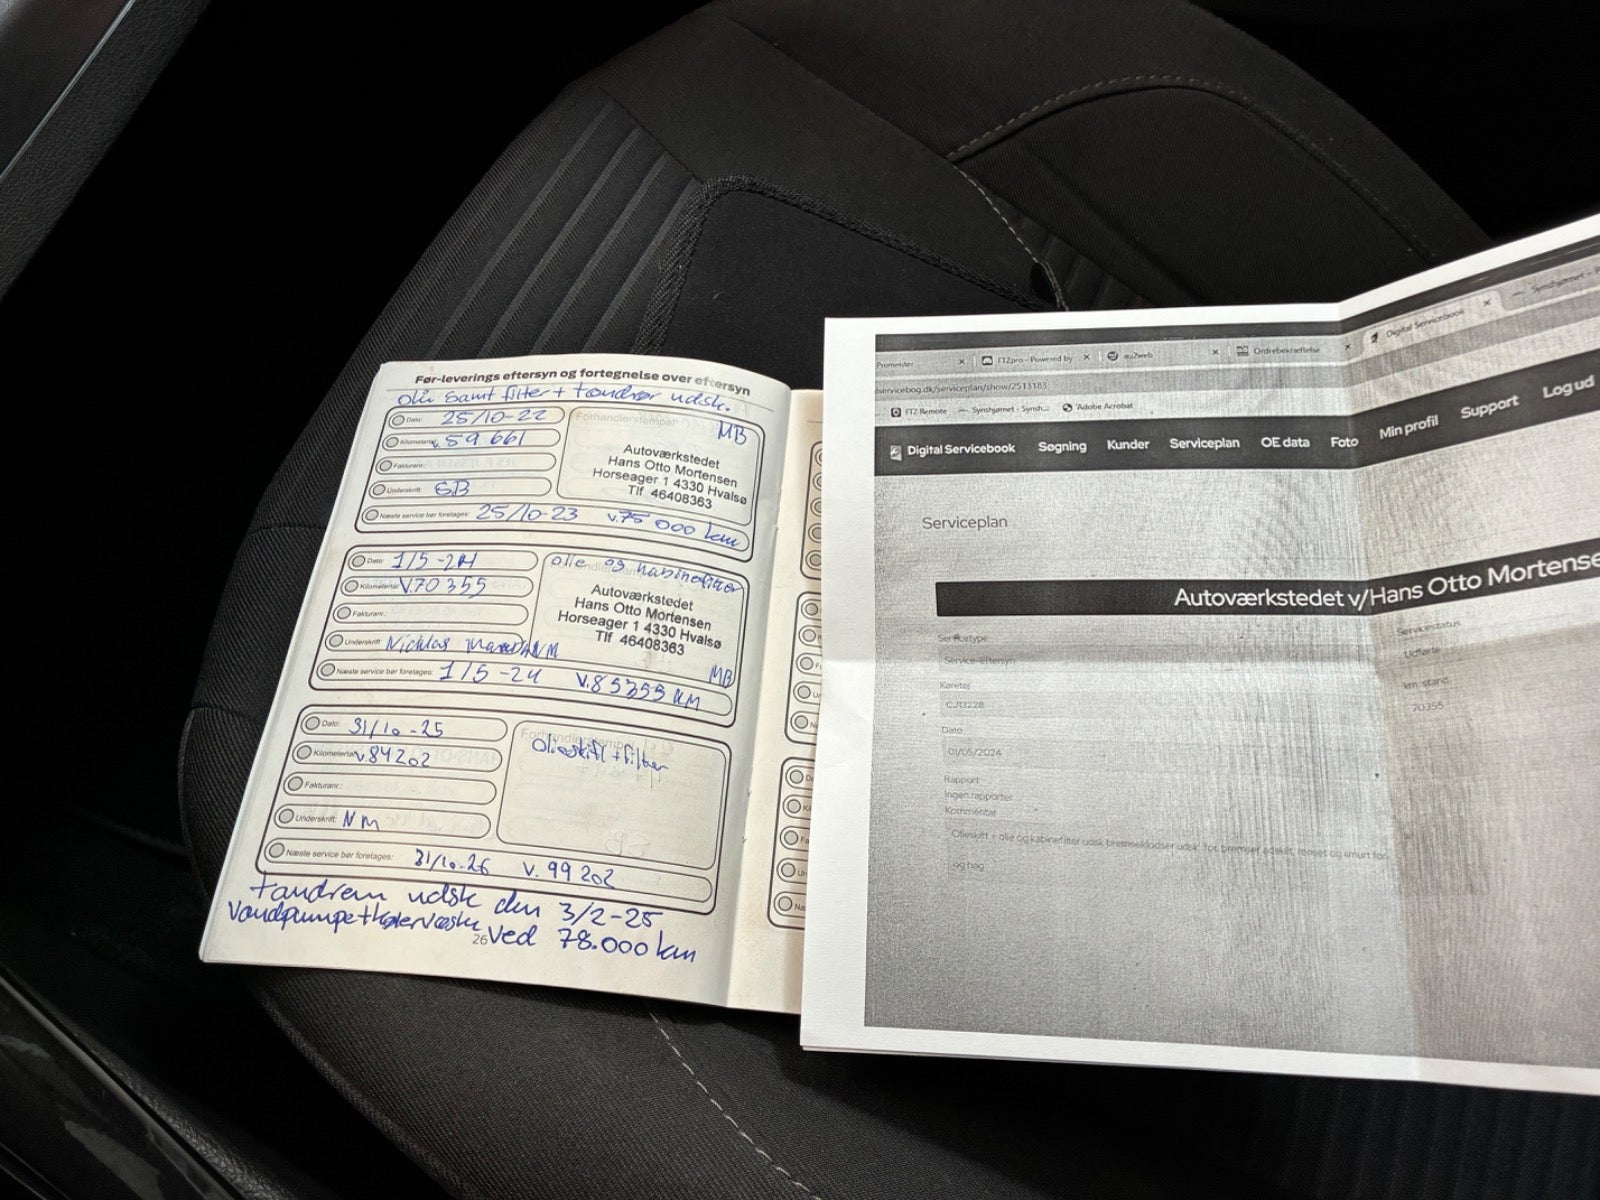 Før-leverings eftersyn og fortegnelse over eftersyn
olie samt filter + tændrør udsk.
Dato: 25/10-22
Kilometertal: v. 59 661
Fakturanr.:
Underskrift: SB
Næste service bør foretages: 25/10-23 v. 75 000 km
Forhandlerstempel:
MB
Autoværkstedet
Hans Otto Mortensen
Horseager 1 4330 Hvalsø
Tlf 46408363
Dato: 1/5-24
Kilometertal: v. 70 355
Fakturanr.:
Underskrift: Nicklas NM
Næste service bør foretages: 1/5-24 v. 85355 KM
olie og kabinefilter
Autoværkstedet
Hans Otto Mortensen
Horseager 1 4330 Hvalsø
Tlf 46408363
MB
Dato: 31/10-25
Kilometertal: v. 84202
Fakturanr.:
Underskrift: NM
Næste service bør foretages: 31/10-26 v. 99 202
Forhandlerstempel:
Olieskift + filter
tandrem udsk den 3/2-25
Vandpumpe+kølervæske ved 78.000 km
26
Promeister
FTZpro - Powered by
eu2web
Ordrebekræftelse
Digital Servicebook
servicebog.dk/serviceplan/show/2513183
FTZ Remote
Synshjørnet - Synsh...
Adobe Acrobat
Digital Servicebook Søgning Kunder Serviceplan OE data Foto Min profil Support Log ud
Serviceplan
Autoværkstedet v/Hans Otto Mortense
Servicetype
Service-eftersyn
Køretøj
CJ13228
Dato
01/05/2024
Rapport
Ingen rapporter
Kommentar
Olieskift + olie og kabinefilter udsk bremseklodser udsk for bremser adskilt, renset og smurt for
og bag
Servicestatus
Udførte
km. stand
70355